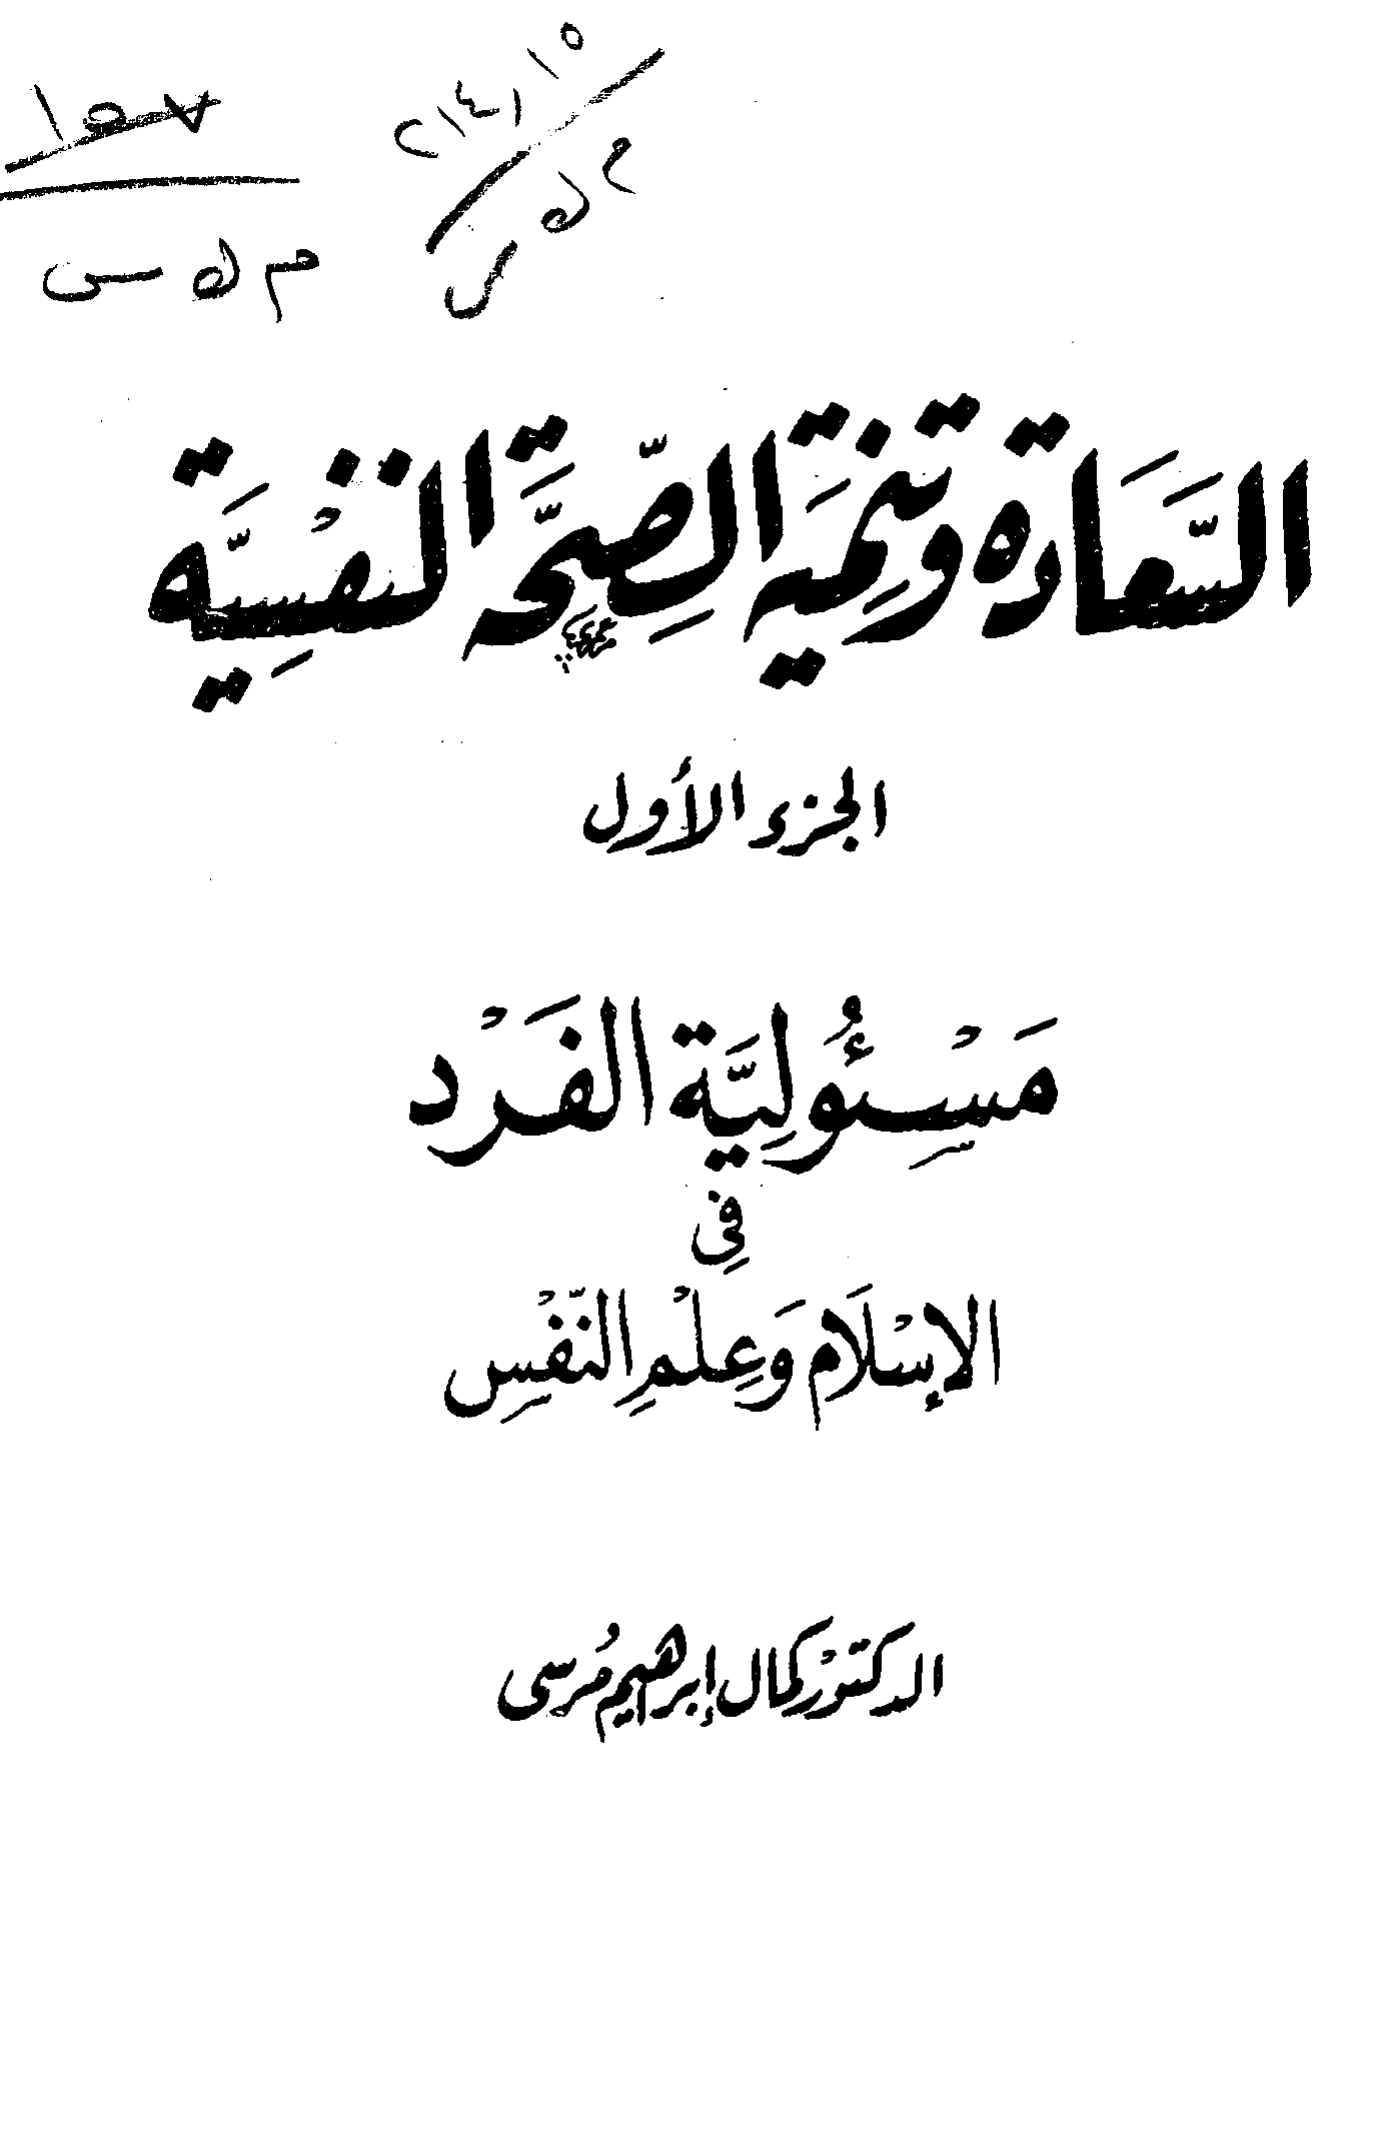 م ك س
م ك س
السَّعَادَة وتنمِيَة الصِّحَّة النفْسِيَّة
الجزء الأول
مَسْئُولِيَّة الفَرْد
فِى
الإسْلَام وَعِلْمِ النَّفْسِ
الدكتور كمال إبراهيم مُرسى